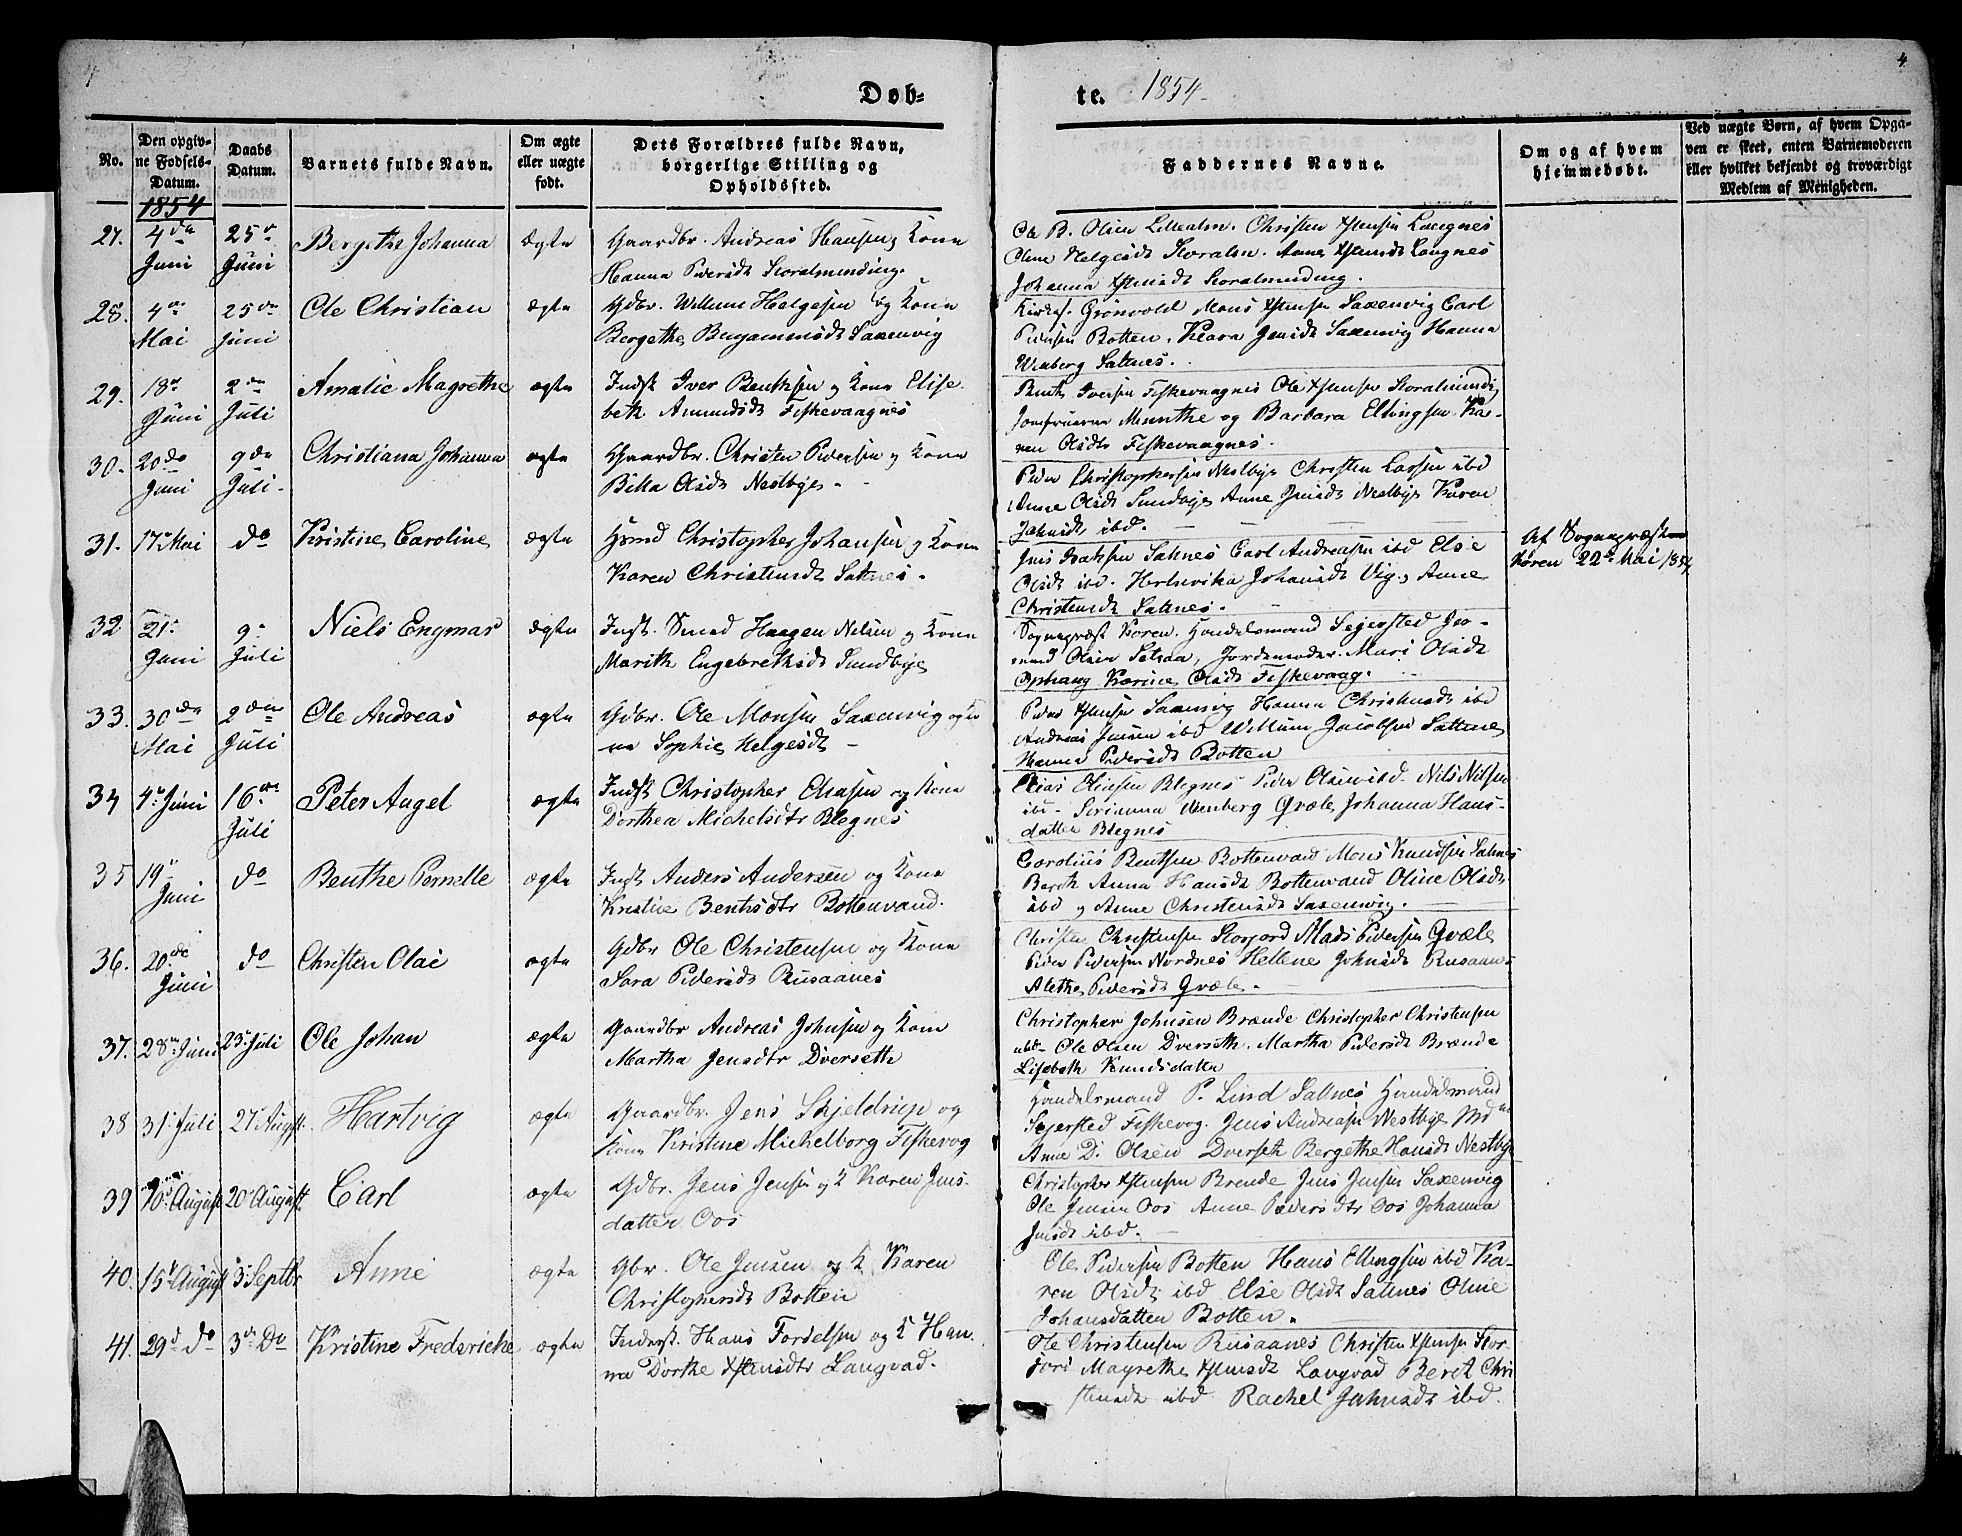 4
Døb-
te. 1854
4
No.
Den opgiv-
ne Fødsels-
Datum.
Daabs
Datum.
Barnets fulde Navn.
Om ægte
eller uægte
født.
Dets Forældres fulde Navn,
borgerlige Stilling og
Opholdssted.
Faddernes Navne.
Om og af hvem
hjemmedøbt.
Ved uægte Børn, af hvem Opga-
ven er skeet, enten Barnemoderen
eller hvilket bekjendt og troværdigt
Medlem af Menigheden.
1854
27. 4de Juni 25de Juni Bergethe Johanna Ægte Gaardbr. Andreas Hansen og Kone
Hanna Pedersdt Storalmending.
Ole B. Olsen Lillealm. Christen Xstensen Langnes
Oline Helgesdt Storalm. Anne Xstensdt Langnes
Johanna Xstensdt Storalmending.
28. 4de Mai 25de Juni Ole Christian ægte Gdbr. Willum Helgesen og Kone
Bergethe Benjaminsdt Saxenvig
Kirkes. Grönvold Mons Xstensen Saxenvig Carl
Pedersen Botten. Klara Jensdt Saxenvig Hanna
Wenberg Saltnes.
29. 18de Juni 2den Juli Amalie Magrethe ægte Indst Iver Bentsen og Kone Elise-
beth Amundsdt Fiskevaagnes
Bent Iversen Fiskevaagnes Ole Xstensen Storalmendg
Jomfruerne Munthe og Barbara Ellingsen Ka-
ren Olsdtr Fiskevaagnes.
30. 20de Juni 9de Juli Christiana Johanna ægte Gaardbr. Christen Pedersen og Kone
Billa Olsdt Nestbye
Peder Christophersen Nestbye Christen Larsen ibd
Anne Olsdt Sundbye Anne Jensdt Nestbye Karen
Jahnsdt ibd.
31. 17de Mai do Kristine Caroline ægte Hsmd Christopher Johansen og Kone
Karen Christensdt Saltnes.
Jens Isaksen Saltnes Carl Andreasen ibd Else
Olsdt ibd. Hertevika Johansdt Vig. Anne
Christensdt Saltnes.
Af Sognepræst
Koren 22de Mai 1854
32 21de Juni 9de Juli Niels Engmar ægte Indst. Smed Haagen Nilsen og Kone
Marith Engebrethsdt Sundbye
Sognepræst Koren. Handelsmand Sejersted
Olsen Setsaa, Jordemoder Mari Olsdt
Ophaug Karine Olsdt Fiskevaag.
33. 30de Mai 2den Juli Ole Andreas ægte Gdbr. Ole Monsen Saxenvig og Ko
ne Sophie Helgesdt
Peder Xstensen Saxenvig Hanna Christensdt ibd
Andreas Jensen ibd Willum Jacobsen Saltnes
Hanna Pedersdt Botten
34 4de Juni 16de Juli Peter Angel ægte Indst Christopher Eliasen og Kone
Dorthea Michelsdtr Blegnes
Elias Eliasen Blegnes Peder Olsen ibd. Nils Nilsen
ib. Wenberg Qvæle Johanna Hans-
datter Blegnes
35 19de Juni do Benthe Pernelle ægte Indst Anders Andersen og Kone
Kristine Bentsdtr Bottenvand.
Carolius Bentsen Bottenvand Mons Knudsen Saltnes
Bereth Anna Hansdt Bottenvand Oline Olsdt
ibd og Anne Christensdt Saxenvig.
36. 20de Juni do Christen Olai ægte Gdbr Ole Christensen og Kone
Sara Pedersdt Rusaanes
Christen Christensen Storjord Mads Pedersen Qvæle
Peder Pedersen Nordnes Hellene Johnsdt Rusaanes
Alethe Pedersdt Qvæle.
37. 28de Juni 23de Juli Ole Johan ægte Gaardbr Andreas Johnsen og Kone
Martha Jensdtr Dverseth
Christopher Johnsen Brænde Christopher Christensen
ibd Ole Olsen Dverseth. Martha Pedersdt Brænde
Lisebeth Knudsdatter
38 31de Juli 27de Augst. Hartvig ægte Gaardbr. Jens Skjeldrup og
Kone Kristine Michelborg Fiskevog
Handelsmand P. Lind Saltnes Handelsmand
Sejersted Fiskevog. Jens Andreasen Nestbye Md
Anne D. Olsen Dverseth Bergethe Hansdt Nestbye
39 10de August 20de August. Carl ægte Gdbr. Jens Jensen og K Karen Jens-
datter Oos
Christopher Xstensen Brende Jens Jensen Saxenvig
Ole Jensen Oos Anne Pedersdtr Oos Johanna
Jensdt ibd.
40. 15de August 3de Septbr Anne ægte Gbr. Ole Jensen og K Karen
Christophersdt Botten
Ole Pedersen Botten Hans Ellingsen ibd Ka-
ren Olsdt ibd Else Olsdt Saltnes Oline
Johansdatter Botten.
41. 29d do 3de Do Kristine Fredericke ægte Inderst. Hans Tordelsen og K Han-
na Dorthe Xstensdtr Langvad.
Ole Christensen Rusaanes Christen Xstensen Stor-
jord Magrethe Xstensdt Langvad Beret Chri
stensdt ibd Rachel Jahnsdt ibd.